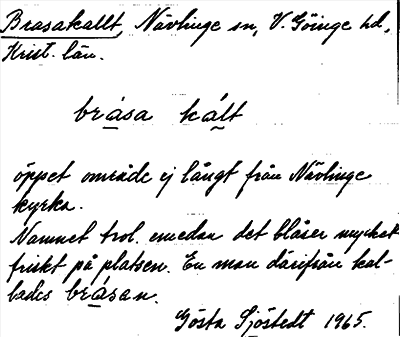 Brasakallt, Nävlinge sn, V. Göinge hd,
Krist. län.
brása kált
öppet område ej långt från Nävlinge
kyrka.
Namnet trol. emedan det blåser mycket
friskt på platsen. En man därifrån kal-
lades brásan.
Gösta Sjöstedt 1965.